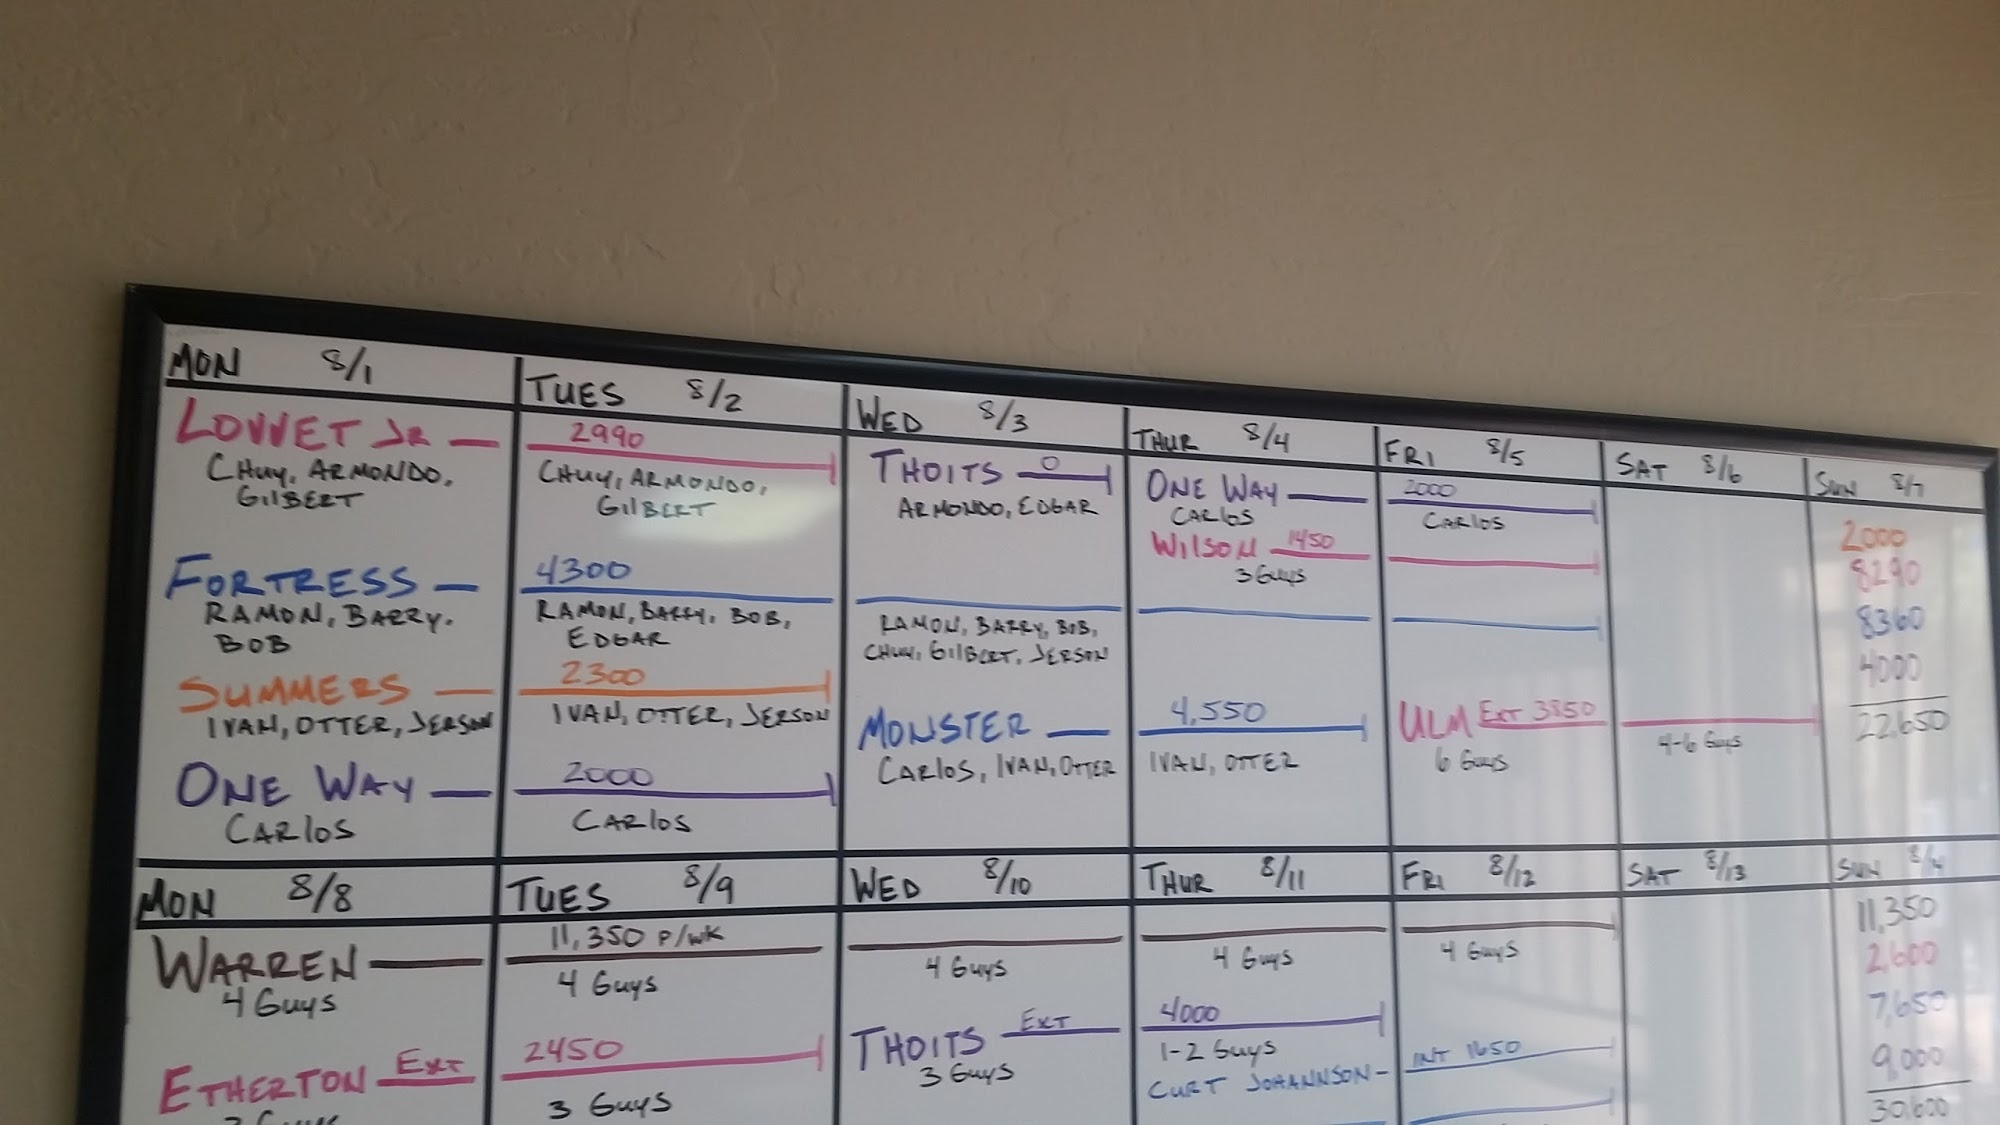 MON 8/1
LOVVET JR
CHUY, ARMONDO,
GILBERT
FORTRESS
RAMON, BARRY,
BOB
SUMMERS
IVAN, OTTER, JERSON
ONE WAY
CARLOS
TUES 8/2
2990
CHUY, ARMONDO,
GILBERT
4300
RAMON, BARRY, BOB,
EDGAR
2300
IVAN, OTTER, JERSON
2000
CARLOS
WED 8/3
THOITS 0
ARMONDO, EDGAR
RAMON, BARRY, BOB,
CHUY, GILBERT, JERSON
MONSTER
CARLOS, IVAN, OTTER
THUR 8/4
ONE WAY
CARLOS
WILSON 1450
3 GUYS
4,550
IVAN, OTTER
FRI 8/5
2000
CARLOS
ULM EXT 3850
6 GUYS
SAT 8/6
4-6 GUYS
SUN 8/7
2000
8290
8360
4000
22,650
MON 8/8
WARREN
4 GUYS
ETHERTON EXT
GUYS
TUES 8/9
11,350 P/WK
4 GUYS
2450
3 GUYS
WED 8/10
4 GUYS
THOITS EXT
3 GUYS
THUR 8/11
4 GUYS
4000
1-2 GUYS
CURT JOHANNSON-
FRI 8/12
4 GUYS
INT 1650
SAT 8/13
SUN 8/14
11,350
2,600
7,650
9,000
30,600